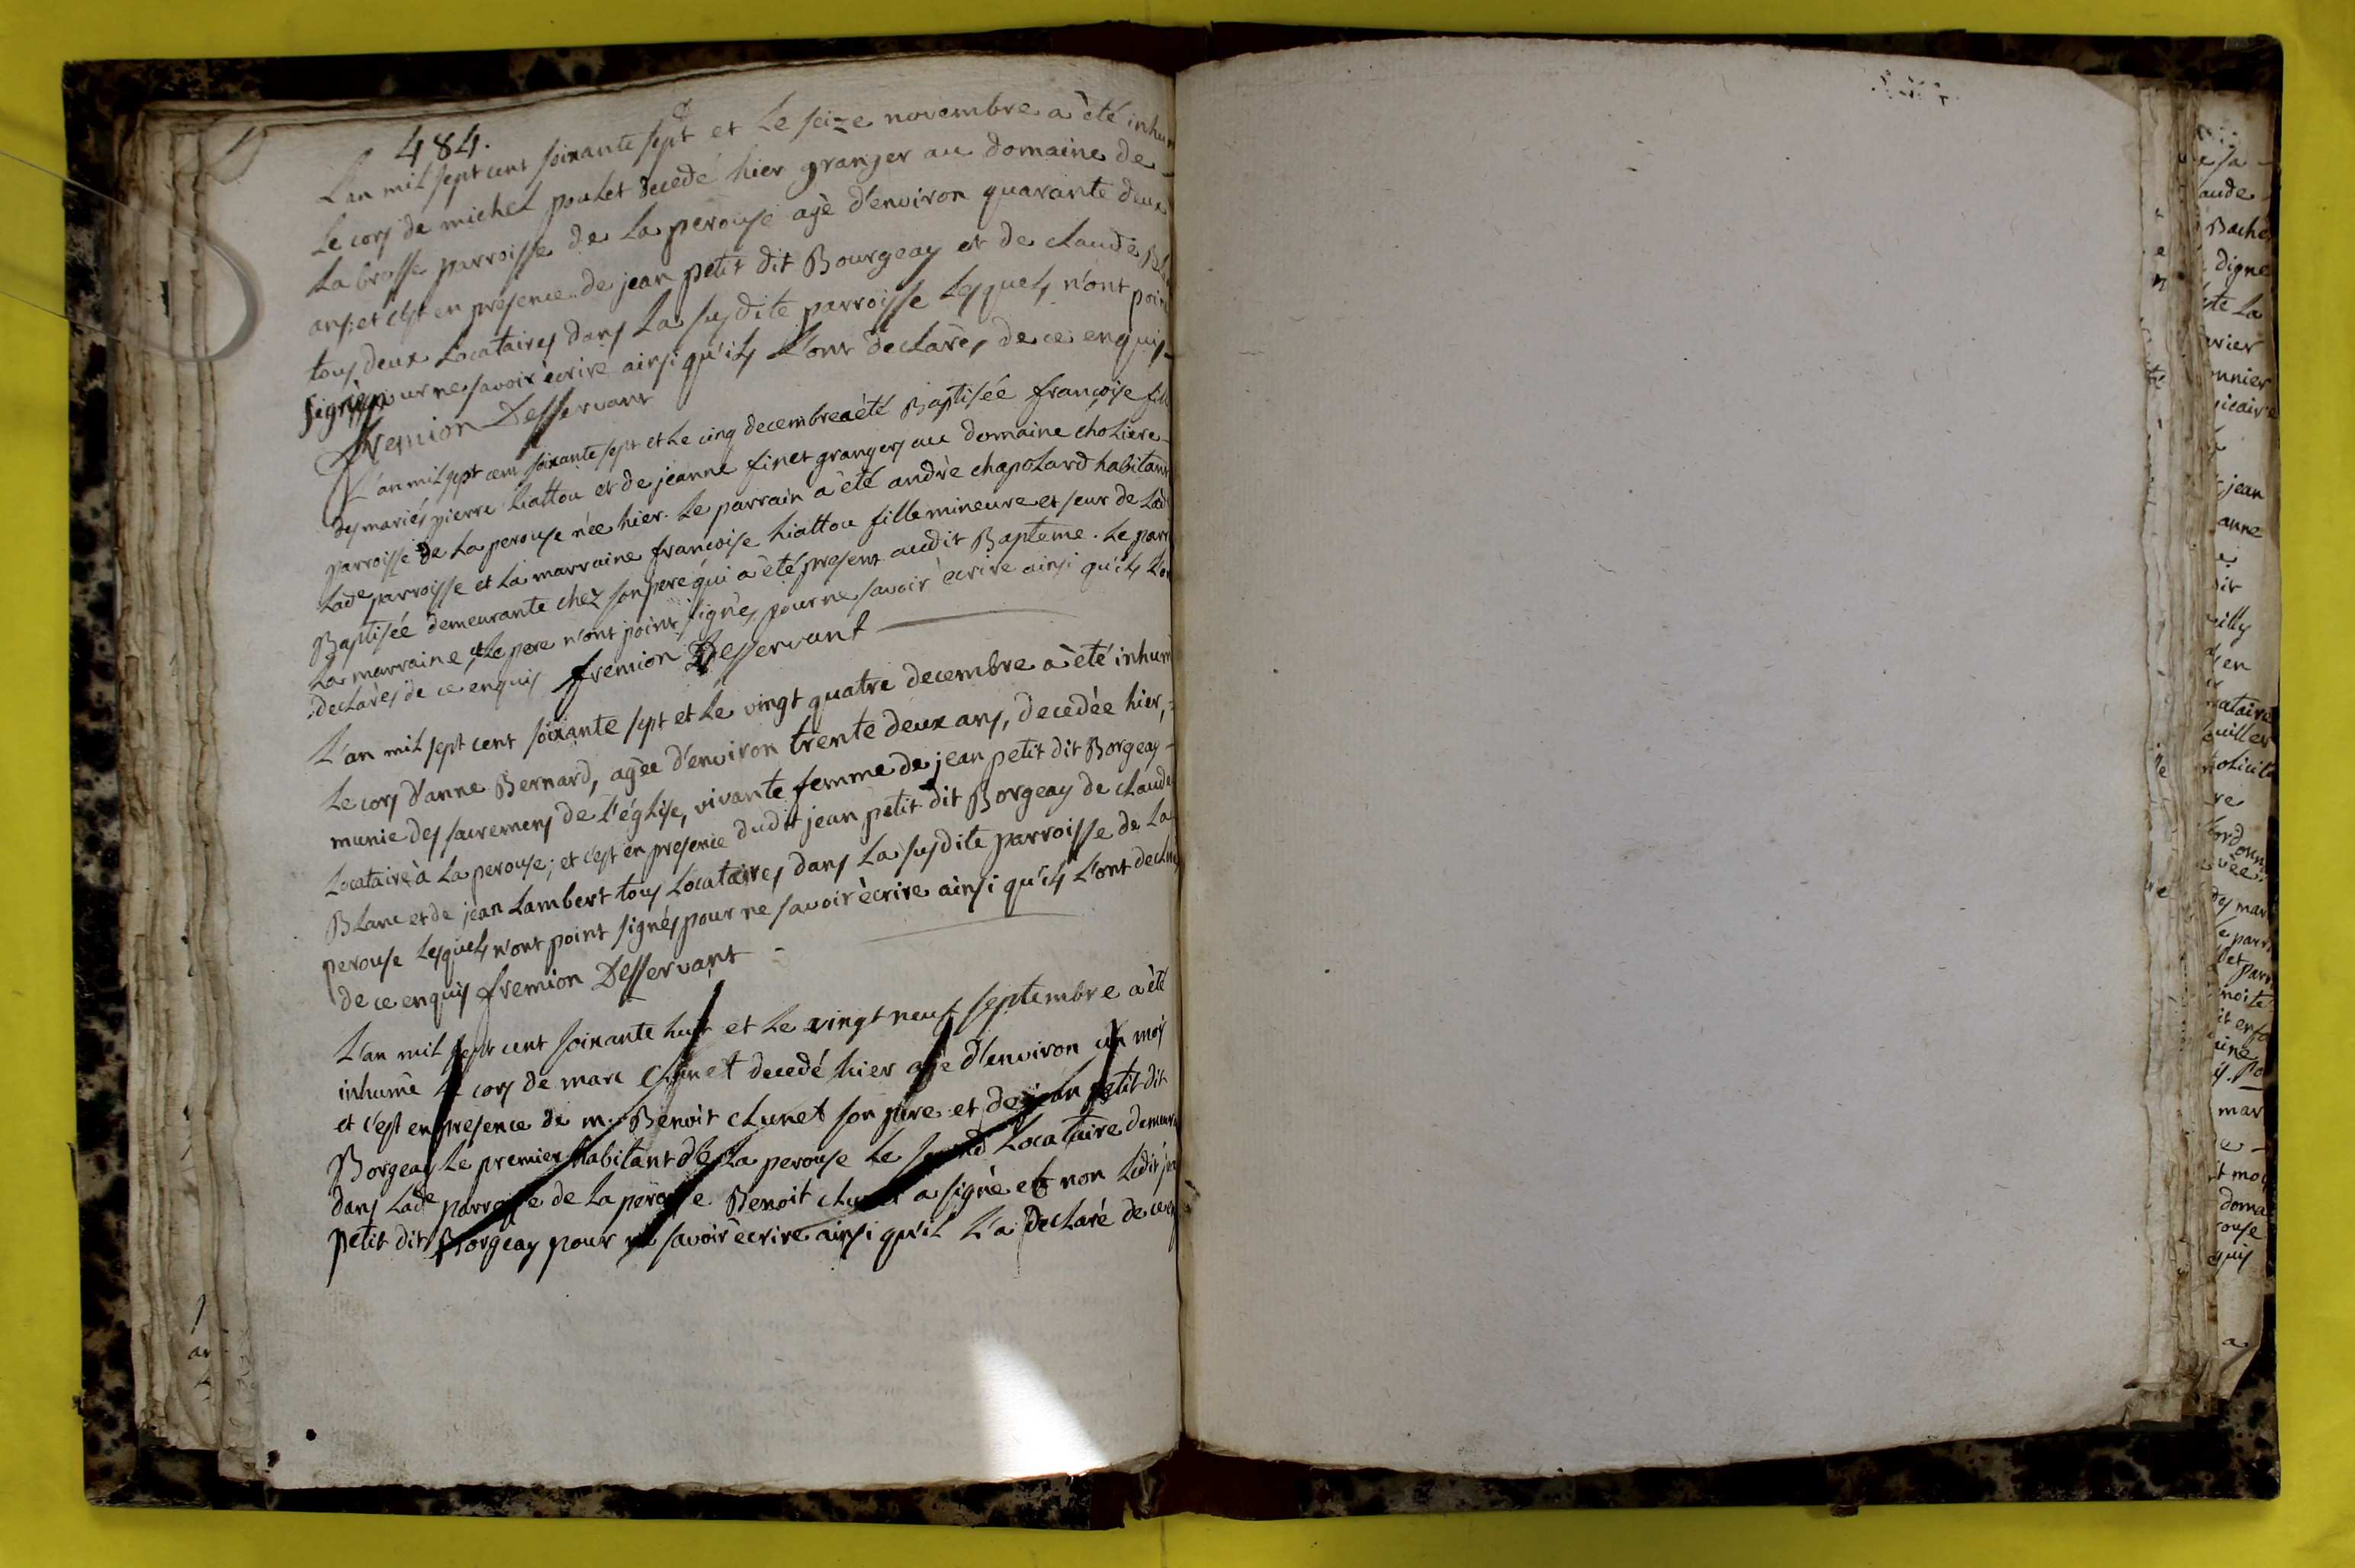 484.
L'an mil sept cent soixante sept et Le seize novembre a èté inhum
Le cors de micheL pouLet decedé hier granger au domaine de
La brosse parroisse de La perouse agè d'environ quarante deux
ans; et c'est en presence de jean petit dit Bourgeay et de cLaude BLa
tous deux Locataires dans La susdite parroisse Lesquels n'ont poin
signés pour ne savoir ecrire ainsi qu'ils L'ont declarès de ce enquis
fremion Desservant
L'an mil sept cent soixante sept et Le cinq decembre a èté Baptisée françoise fill
des mariés pierre Liattou et de jeanne finet grangers au domaine choLiere
parroisse de La perouse née hier. Le parrain a èté andrè chapoLard habitant
Lade parroisse et La marraine françoise Liattou fille mineure et seur de Lad
Baptisée demeurante chez son pere qui a èté present audit Bapteme. Le parr
La marraine et Le pere n'ont point signés pour ne savoir ecrire ainsi qu'ils L'on
declarès de ce enquis fremion Desservant
L'an mil sept cent soixante sept et Le vingt quatre decembre a èté inhum
Le cors d'anne Bernard, agèe d'environ trente deux ans, decedée hier,
munie des sacremens de L'égLise, vivante femme de jean petit dit Borgeay
Locataire à La perouse; et c'est en presence dudit jean petit dit Borgeay de cLaude
BLanc et de jean Lambert tous Locataires dans La susdite parroisse de La
perouse Lesquels n'ont point signés pour ne savoir ècrire ainsi qu'ils L'ont decLar
de ce enquis fremion Desservant
L'an mil sept cent soixante huit et Le vingt neuf septembre a èté
inhumè Le cors de marc cLunet decedé hier agè d'environ un mois
et c'est en presence de m. Benoit cLunet son pere et de jean petit dit
Borgeay Le premier habitant de La perouse Le second Locataire demeur
dans Lade parroisse de La perouse Benoit cLunet a signè et non Ledit jea
petit dit Borgeay pour ne savoir ecrire ainsi qu'iL L'a decLaré de ce en
e sa
aude
Bache
digne
ste La
nnier
icaire
jean
anne
dit
illy
en
ataire
ouiller
re
des mar
Le parr
et parr
noite
mar
doma
ouse
quis